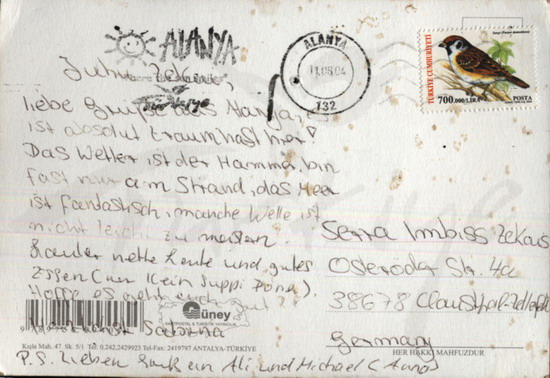 ALANYA
ALANYA
11.06.04
132
TÜRKİYE CUMHURİYETİ
700.000 LİRA
POSTA
Juhu
liebe Grüße aus Alanya, es
ist absolut traumhaft hier!
Das Wetter ist der Hammer, bin
fast nur am Strand, das Meer
ist fantastisch, manche Welle ist
nicht leicht zu meistern.
Lauter nette Leute und gutes
Essen (nur kein Suppi Döna).
Hoffe es geht euch gut?
Sabrina
P.S. Lieben Gruß an Ali und Michael (Anna)
Serra Imbiss Zekais
Osteröder Str. 4a
38678 Clausthal-Zellerfeld
Germany
Güney
KARTPOSTAL & TURİSTİK YAYINCILIK
Kışla Mah. 47. Sk. 5/1 Tel: 0.242.2429923 Tel-Fax: 2419787 ANTALYA-TÜRKİYE
HER HAKKI MAHFUZDUR